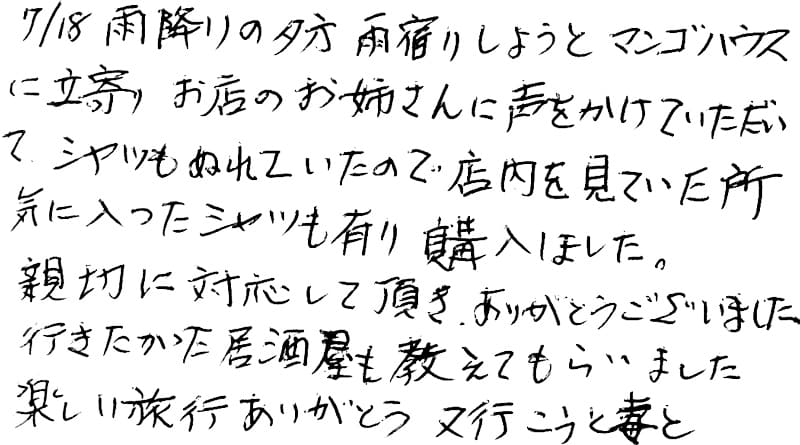 7/18 雨降りの夕方 雨宿りしようと マンゴハウス
に立寄り お店のお姉さんに声をかけていただい
て、シャツもぬれていたので店内を見ていた所
気に入ったシャツも有り 購入しました。
親切に対応して頂き、ありがとうございました
行きたかった居酒屋も教えてもらいました
楽しい旅行ありがとう 又行こうと妻と